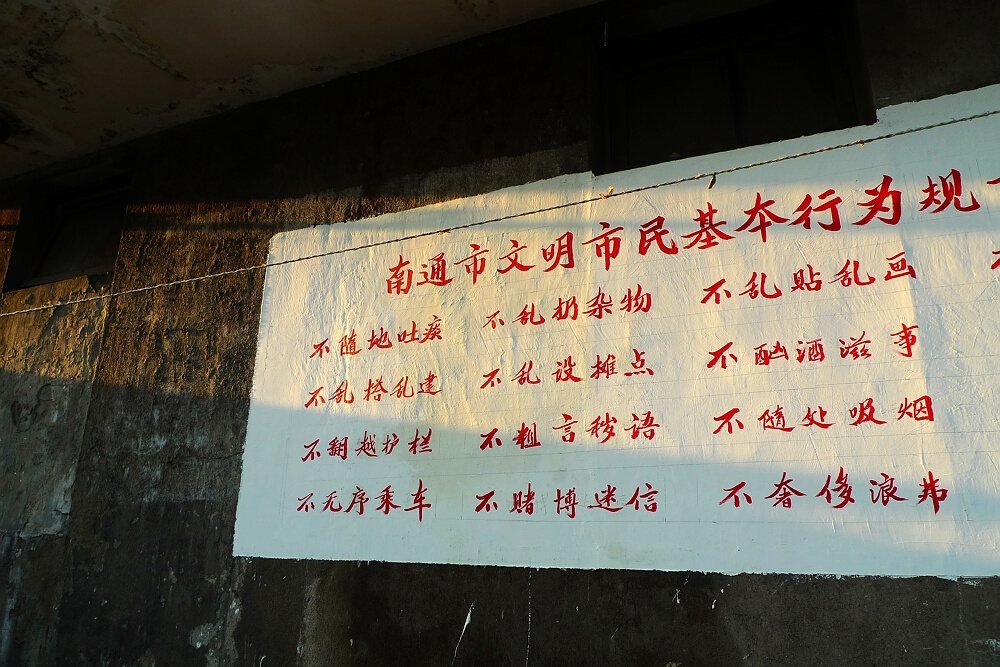 南通市文明市民基本行为规
不随地吐痰 不乱扔杂物 不乱贴乱画
不乱搭乱建 不乱设摊点 不酗酒滋事
不翻越护栏 不粗言秽语 不随处吸烟
不无序乘车 不赌博迷信 不奢侈浪弗